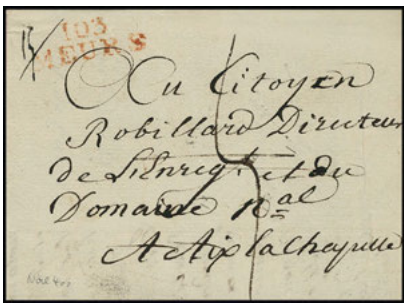 103
MEURS
Au Citoyen
Robillard Directeur
de L'Enreg.t et du
Domaine N.al
A Aix la Chapelle